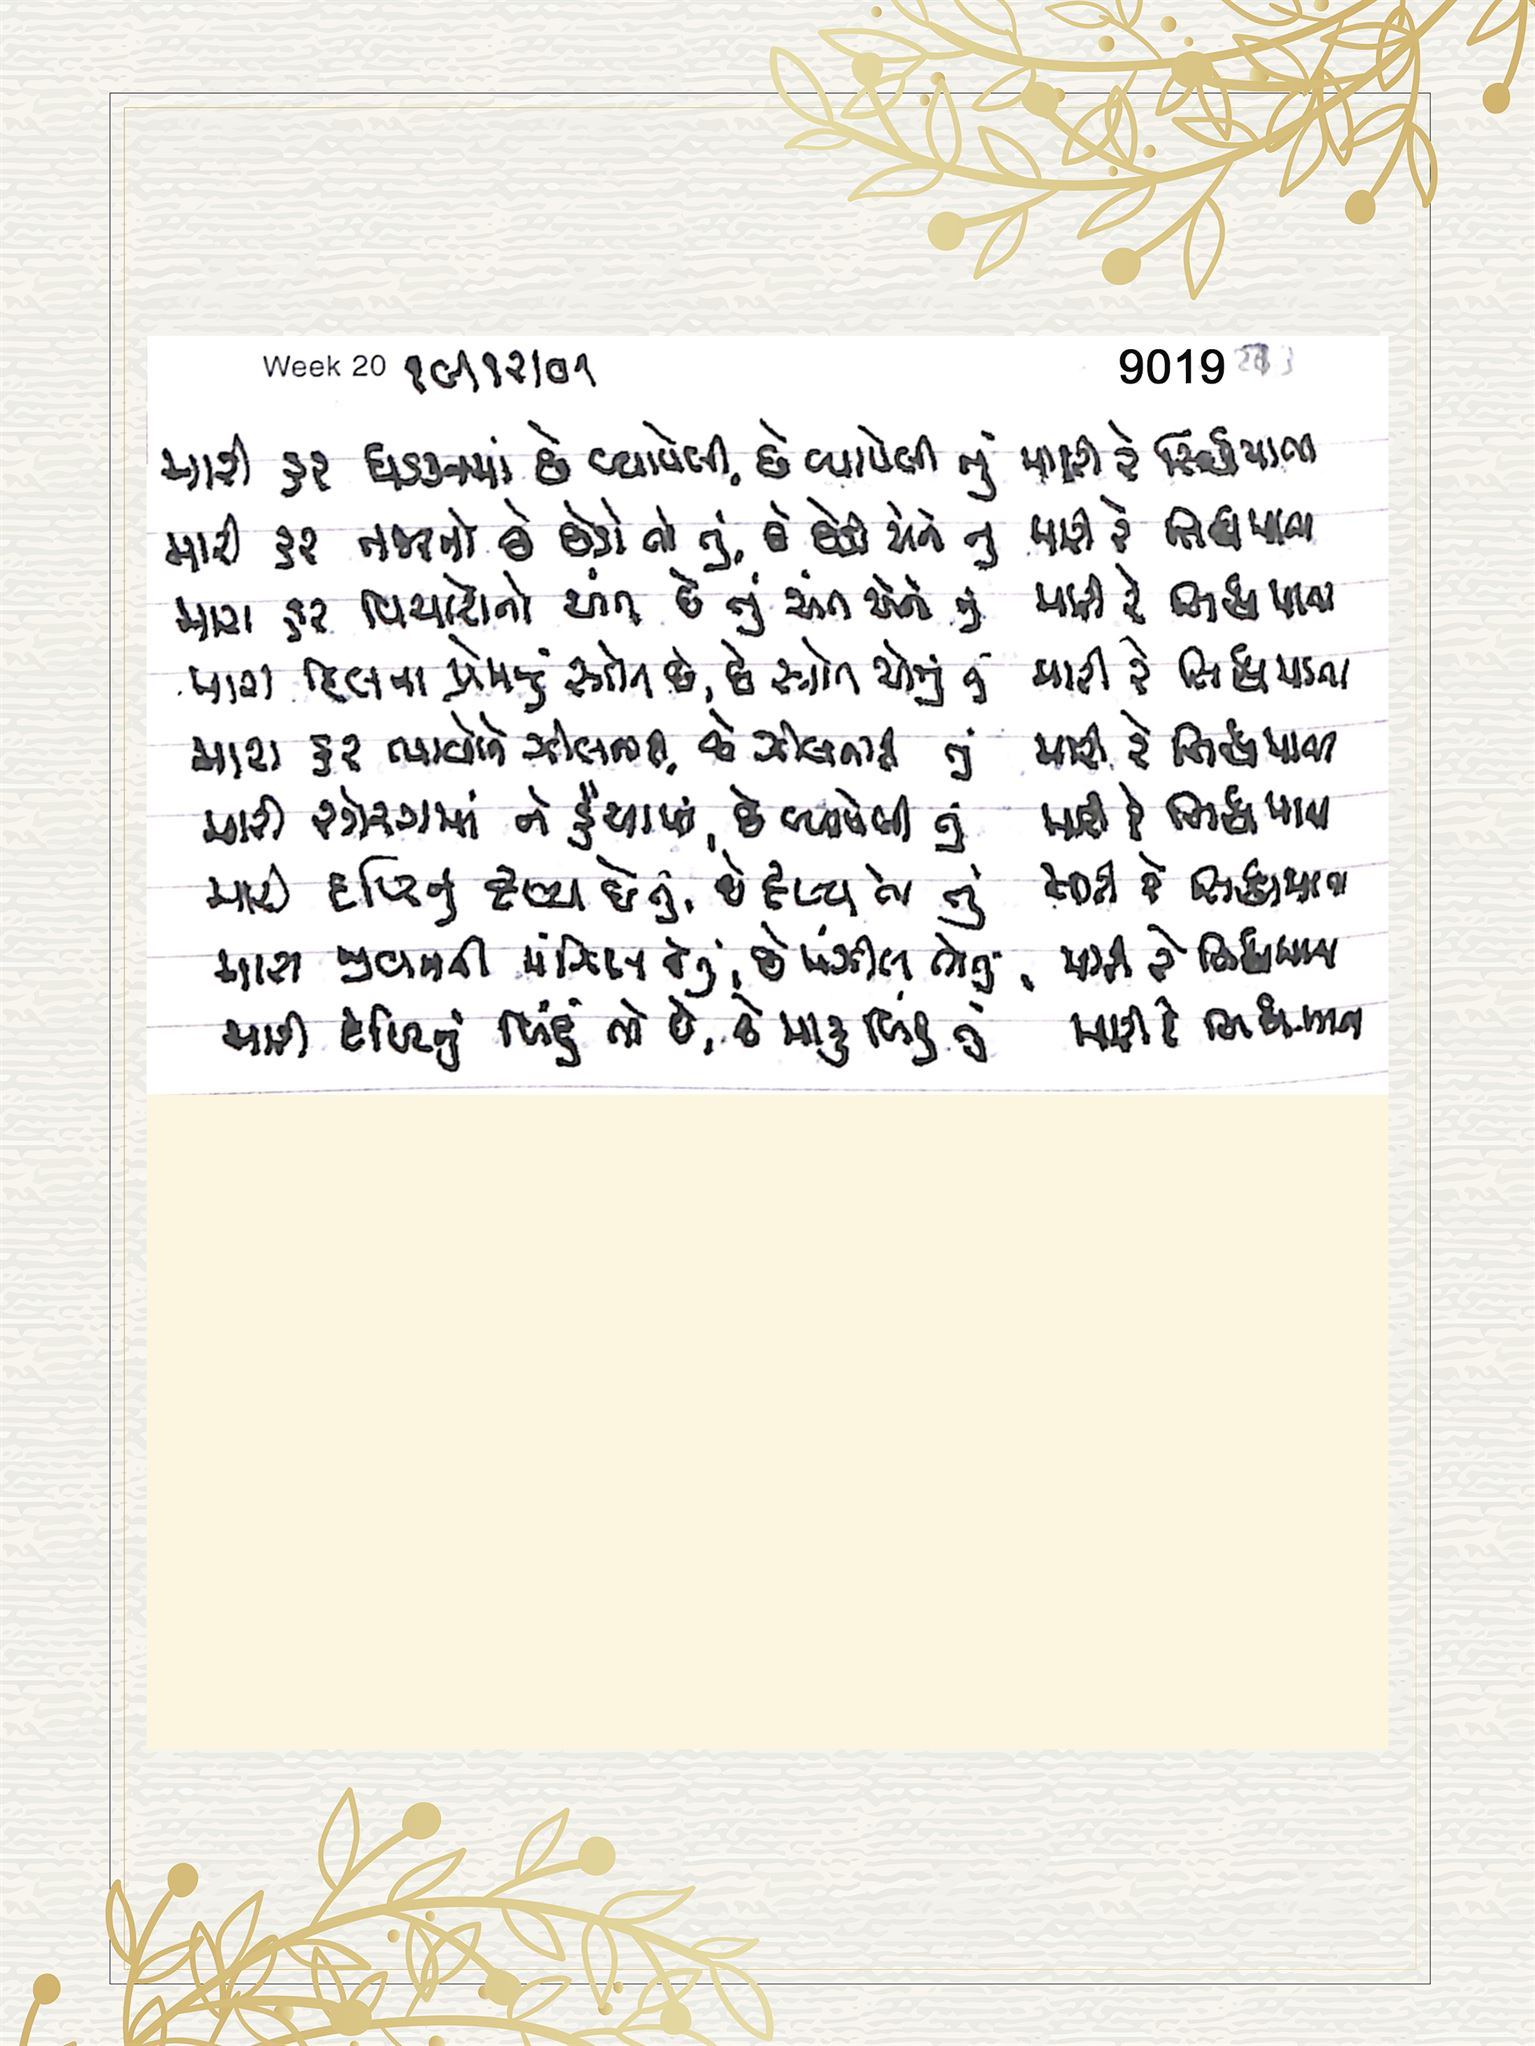 Week 20 ૧૯/૧૨/૦૧ 9019
મારી હર ધડકનમાં છે વ્યાપેલી, છે વ્યાપેલી તું મારી રે સિધ્ધમાતા
મારી હર નજરનો છે છેડો તો તું, છે છેડો એને તું મારી રે સિધ્ધમાતા
મારા હર વિચારોનો અંત છે તું અંત એને તું મારી રે સિધ્ધમાતા
મારા દિલના પ્રેમનું સ્ત્રોત છે, છે સ્ત્રોત એનું તું મારી રે સિધ્ધમાતા
મારા હર ભાવોને ઝીલનારી, છે ઝીલનારી તું મારી રે સિધ્ધમાતા
મારી રગેરગમાં ને હૈયામાં, છે વ્યાપેલી તું મારી રે સિધ્ધમાતા
મારી દૃષ્ટિનું દૃશ્ય છે તું, છે દૃશ્ય તો તું મારી રે સિધ્ધમાતા
મારા જીવનની મંઝિલ છે તું, છે મંઝીલ તો તું, મારી રે સિધ્ધમાતા
મારી દૃષ્ટિનું બિંદુ તો છે, છે મારૂ બિંદુ તું મારી રે સિધ્ધમાતા